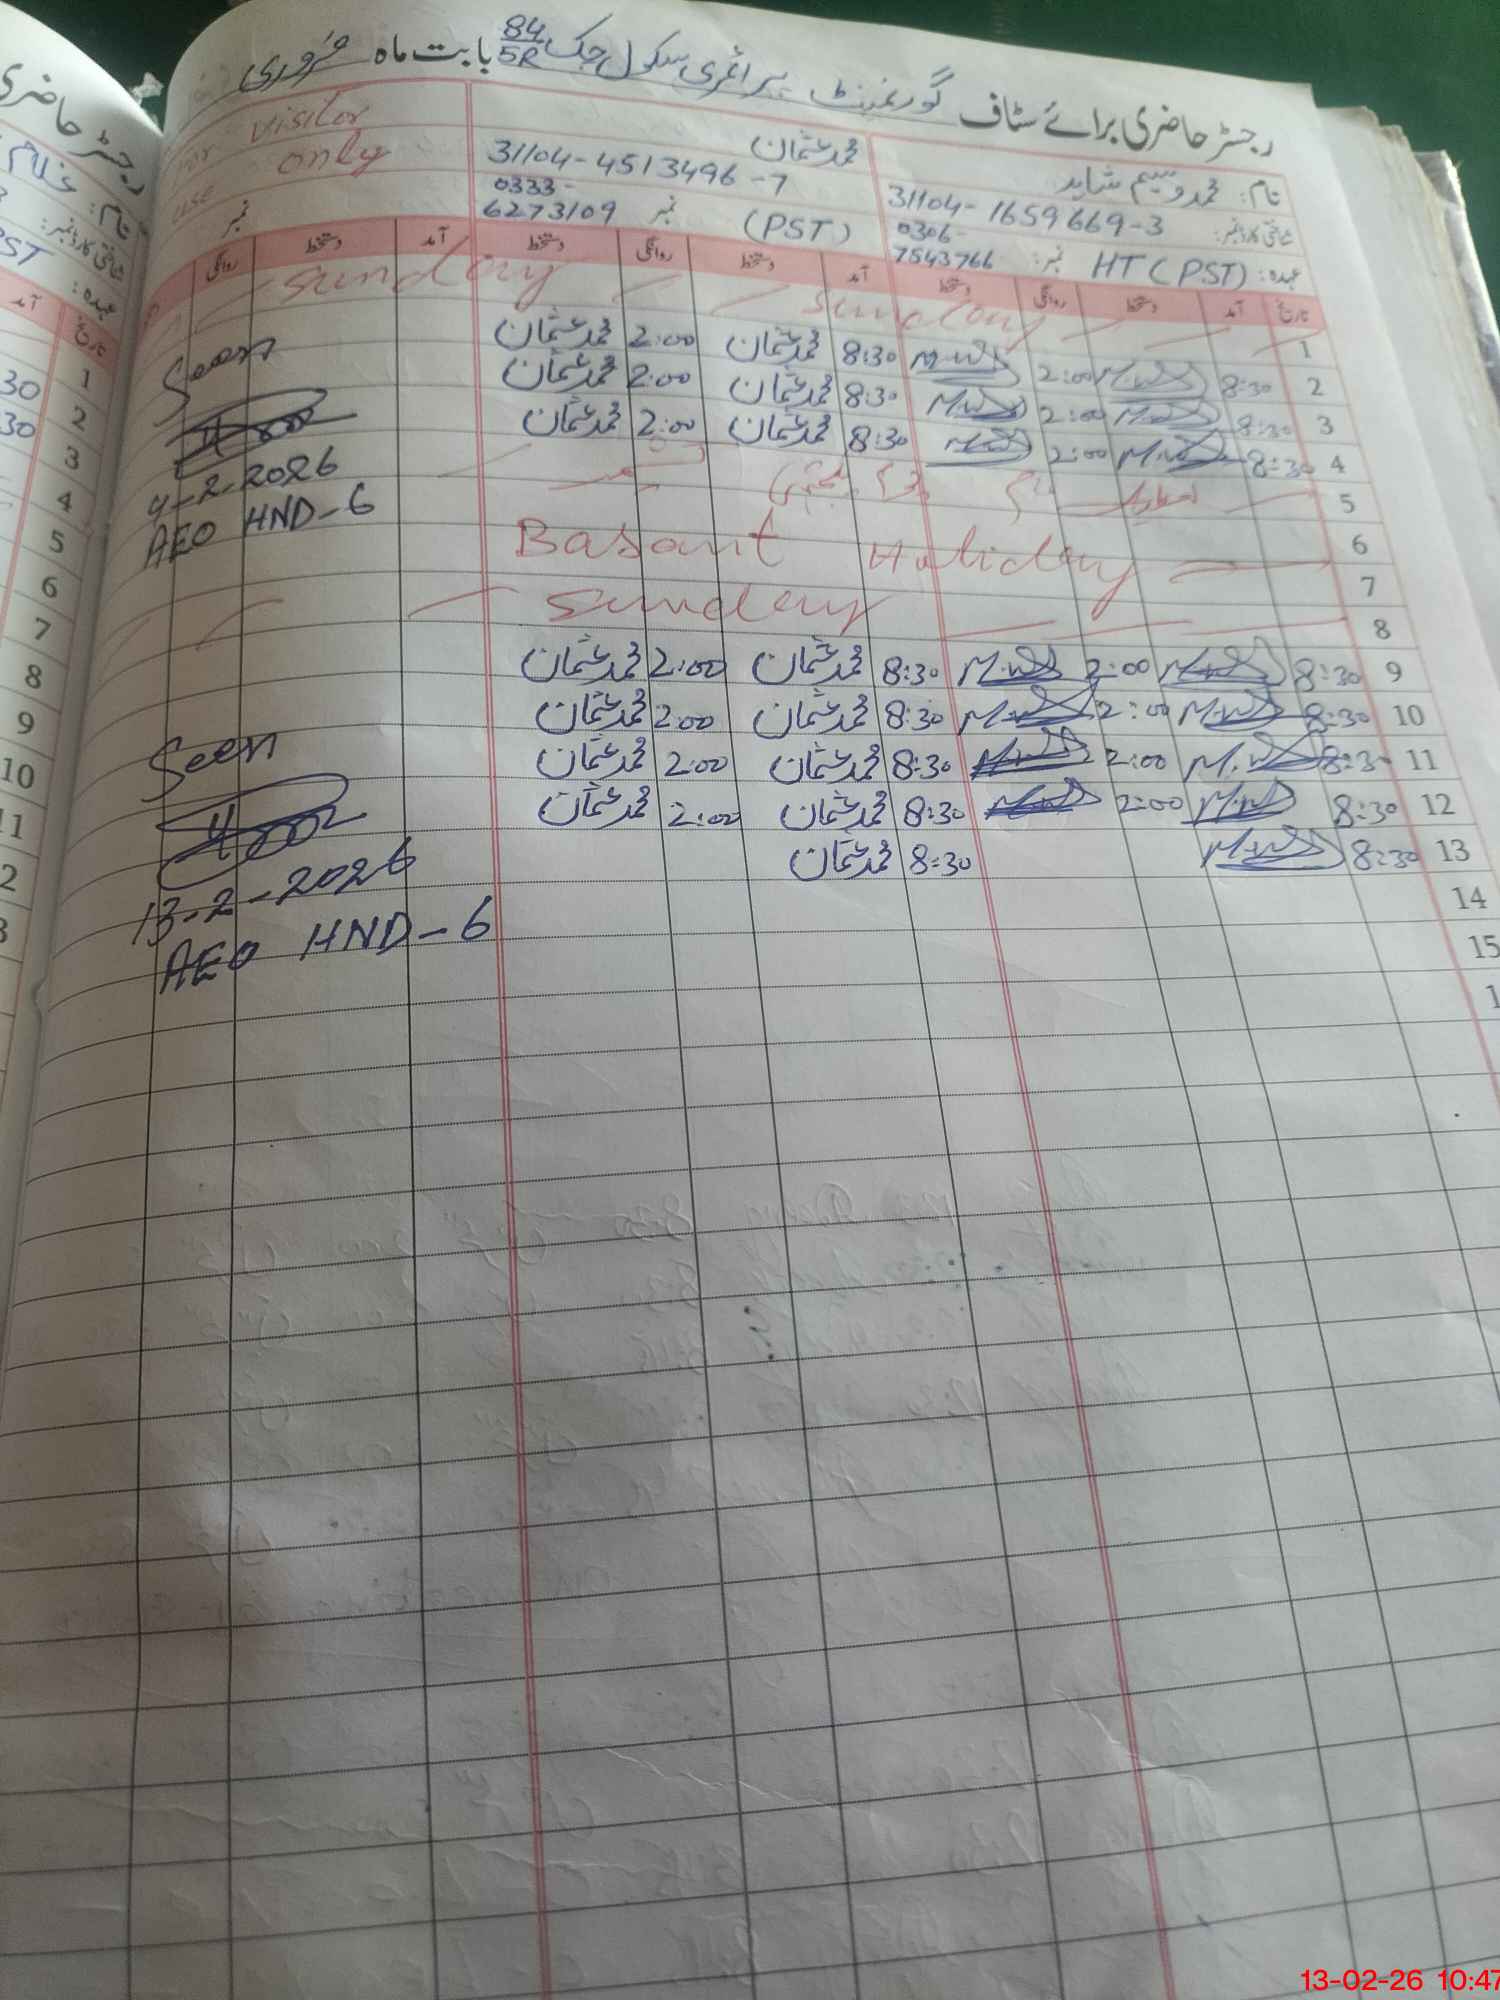 رجسٹر حاضری برائے سٹاف گورنمنٹ پرائمری سکول چک 84/5R بابت ماہ فروری
نام: محمد وسیم شاہد
محمد عثمان
For visitor
شناختی کارڈ نمبر: 31104-1659669-3
31104-4513496-7
use only
عہدہ: HT (PST) نمبر: 0306-7543766
(PST) نمبر 0333-6273109
نمبر
تاریخ آمد دستخط روانگی دستخط آمد دستخط روانگی دستخط آمد دستخط روانگی
1 Sunday Sunday
2 8:30 2:00 8:30 محمد عثمان 2:00 محمد عثمان
3 8:30 2:00 8:30 محمد عثمان 2:00 محمد عثمان
4 8:30 2:00 8:30 محمد عثمان 2:00 محمد عثمان
Seen
4-2-2026
AEO HND-6
5
6 Basant Holiday
7
8 Sunday
9 8:30 2:00 8:30 محمد عثمان 2:00 محمد عثمان
10 8:30 2:00 8:30 محمد عثمان 2:00 محمد عثمان
11 8:30 2:00 8:30 محمد عثمان 2:00 محمد عثمان
12 8:30 2:00 8:30 محمد عثمان 2:00 محمد عثمان
13 8:30 8:30 محمد عثمان
Seen
13-2-2026
AEO HND-6
14
15
1
رجسٹر حاضری
نام: غلام
شناختی کارڈ نمبر:
عہدہ: PST
تاریخ آمد
1
2 30
3 30
4
5
6
7
8
9
10
11
2
3
13-02-26 10:47